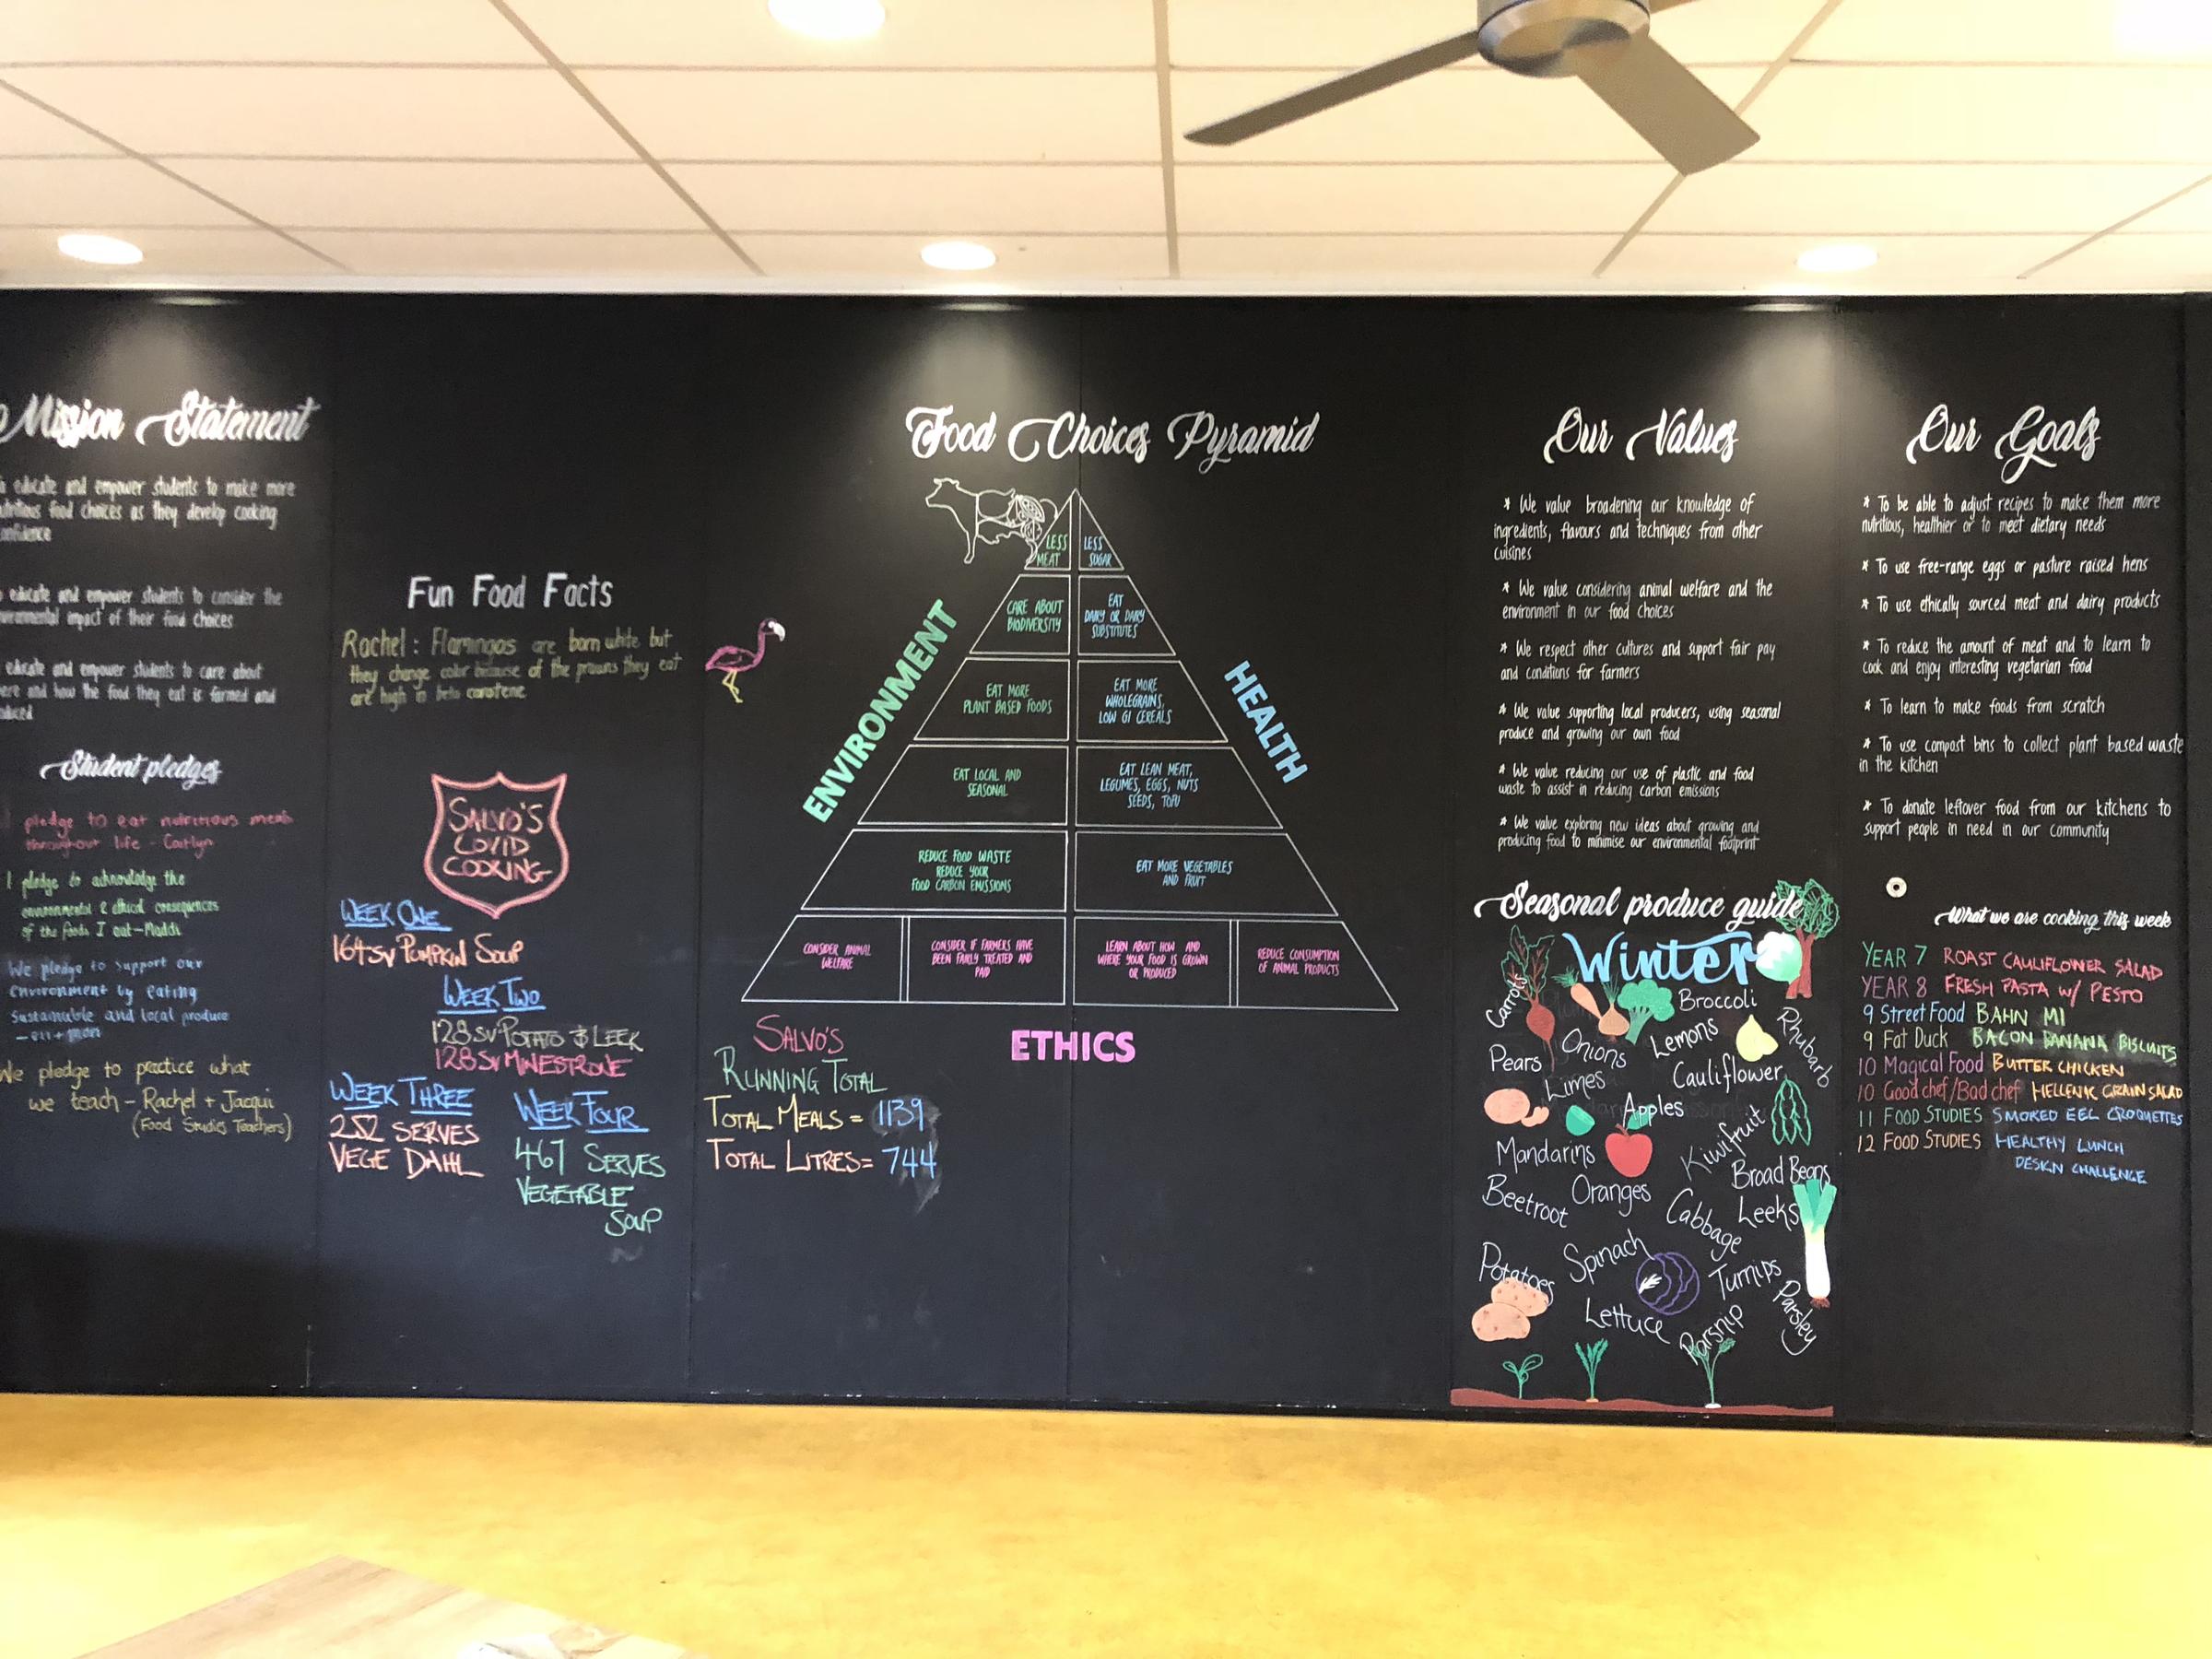 Mission Statement
educate and empower students to make more
food choices as they develop cooking
educate and empower students to consider the
impact of their food choices
educate and empower students to care about
and how the food they eat is farmed and
Student pledges
I pledge to eat nutritious meals
throughout life - Caitlyn
I pledge to acknowledge the
environmental & ethical consequences
of the foods I eat - Maddi
We pledge to support our
environment by eating
sustainable and local produce
We pledge to practice what
we teach - Rachel + Jacqui
(Food Studies Teachers)
Fun Food Facts
Rachel: Flamingos are born white but
they change color because of the prawns they eat
are high in beta carotene
SALVO'S
COVID
COOKING
WEEK ONE
164 SV PUMPKIN SOUP
WEEK TWO
128 SV POTATO & LEEK
128 SV MINESTRONE
WEEK THREE
252 SERVES
VEGE DAHL
WEEK FOUR
467 SERVES
VEGETABLE
SOUP
SALVO'S
RUNNING TOTAL
TOTAL MEALS = 1139
TOTAL LITRES = 744
Food Choices Pyramid
ENVIRONMENT
HEALTH
ETHICS
LESS
MEAT
LESS
SUGAR
CARE ABOUT
BIODIVERSITY
EAT
DAIRY OR DAIRY
SUBSTITUTES
EAT MORE
PLANT BASED FOODS
EAT MORE
WHOLEGRAINS,
LOW GI CEREALS
EAT LOCAL AND
SEASONAL
EAT LEAN MEAT,
LEGUMES, EGGS, NUTS
SEEDS, TOFU
REDUCE FOOD WASTE
REDUCE YOUR
FOOD CARBON EMISSIONS
EAT MORE VEGETABLES
AND FRUIT
CONSIDER ANIMAL
WELFARE
CONSIDER IF FARMERS HAVE
BEEN FAIRLY TREATED AND
PAID
LEARN ABOUT HOW AND
WHERE YOUR FOOD IS GROWN
OR PRODUCED
REDUCE CONSUMPTION
OF ANIMAL PRODUCTS
Our Values
* We value broadening our knowledge of
ingredients, flavours and techniques from other
cuisines
* We value considering animal welfare and the
environment in our food choices
* We respect other cultures and support fair pay
and conditions for farmers
* We value supporting local producers, using seasonal
produce and growing our own food
* We value reducing our use of plastic and food
waste to assist in reducing carbon emissions
* We value exploring new ideas about growing and
producing food to minimise our environmental footprint
Seasonal produce guide
Winter
Carrots
Broccoli
Onions
Lemons
Rhubarb
Pears
Limes
Cauliflower
Apples
Mandarins
Kiwifruit
Broad Beans
Beetroot
Oranges
Cabbage
Leeks
Potatoes
Spinach
Turnips
Lettuce
Parsnip
Parsley
Our Goals
* To be able to adjust recipes to make them more
nutritious, healthier or to meet dietary needs
* To use free-range eggs or pasture raised hens
* To use ethically sourced meat and dairy products
* To reduce the amount of meat and to learn to
cook and enjoy interesting vegetarian food
* To learn to make foods from scratch
* To use compost bins to collect plant based waste
in the kitchen
* To donate leftover food from our kitchens to
support people in need in our community
What we are cooking this week
YEAR 7 ROAST CAULIFLOWER SALAD
YEAR 8 FRESH PASTA W/ PESTO
9 Street Food BAHN MI
9 Fat Duck BACON BANANA BISCUITS
10 Magical Food BUTTER CHICKEN
10 Good chef/Bad chef HELLENIC GRAIN SALAD
11 FOOD STUDIES SMOKED EEL CROQUETTES
12 FOOD STUDIES HEALTHY LUNCH
DESIGN CHALLENGE